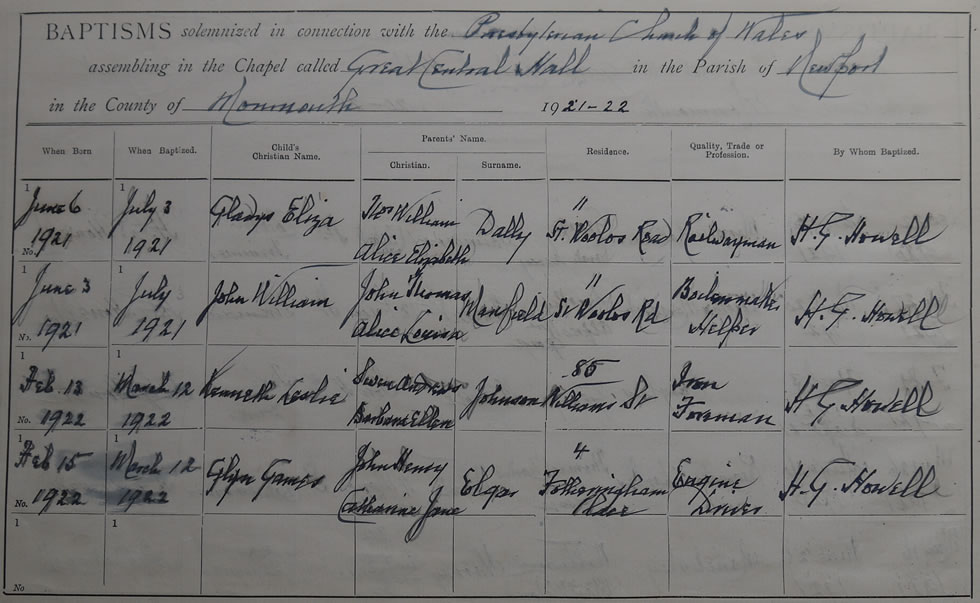 BAPTISMS solemnized in connection with the Presbyterian Church of Wales
assembling in the Chapel called Great Central Hall in the Parish of Newport
in the County of Monmouth 1921-22
When Born When Baptized. Child's Christian Name. Parents' Name. Christian. Surname. Residence. Quality, Trade or Profession. By Whom Baptized.
1 June 6 1 July 3 Gladys Eliza Thos William Dally 11 Railwayman H. G. Howell
No. 1921 1921 Alice Elizabeth St. Woolos Road
1 June 3 1 July John William John Thomas Manfield 11 Boilermaker H. G. Howell
No. 1921 1921 Alice Louisa St Woolos Rd Helper
1 Feb 13 1 March 12 Kenneth Leslie Johnson 85 Iron H G Howell
No. 1922 1922 Barbara Ellen Williams St Foreman
1 Feb 15 1 March 12 Glyn John Henry 4 Engine H. G. Howell
No. 1922 1922 Catherine Jane Fotheringham Driver
1 1
No